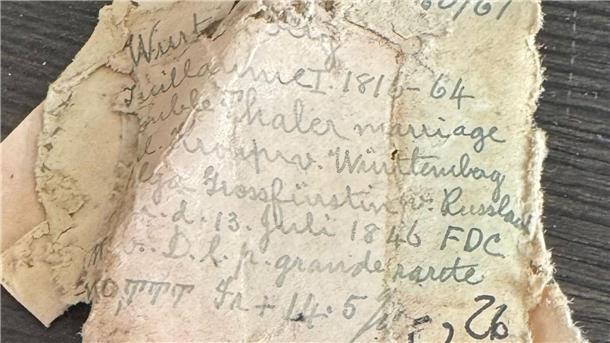 60/61
Wurt
Guillaume I. 1816-64
Double Thaler marriage
Kronpr. v. Württembag
Olga Grossfürstin v. Russland
d. 13. Juli 1846 FDC
v. D. l. p. grande rarete
TTT Fr + 14.5%
26